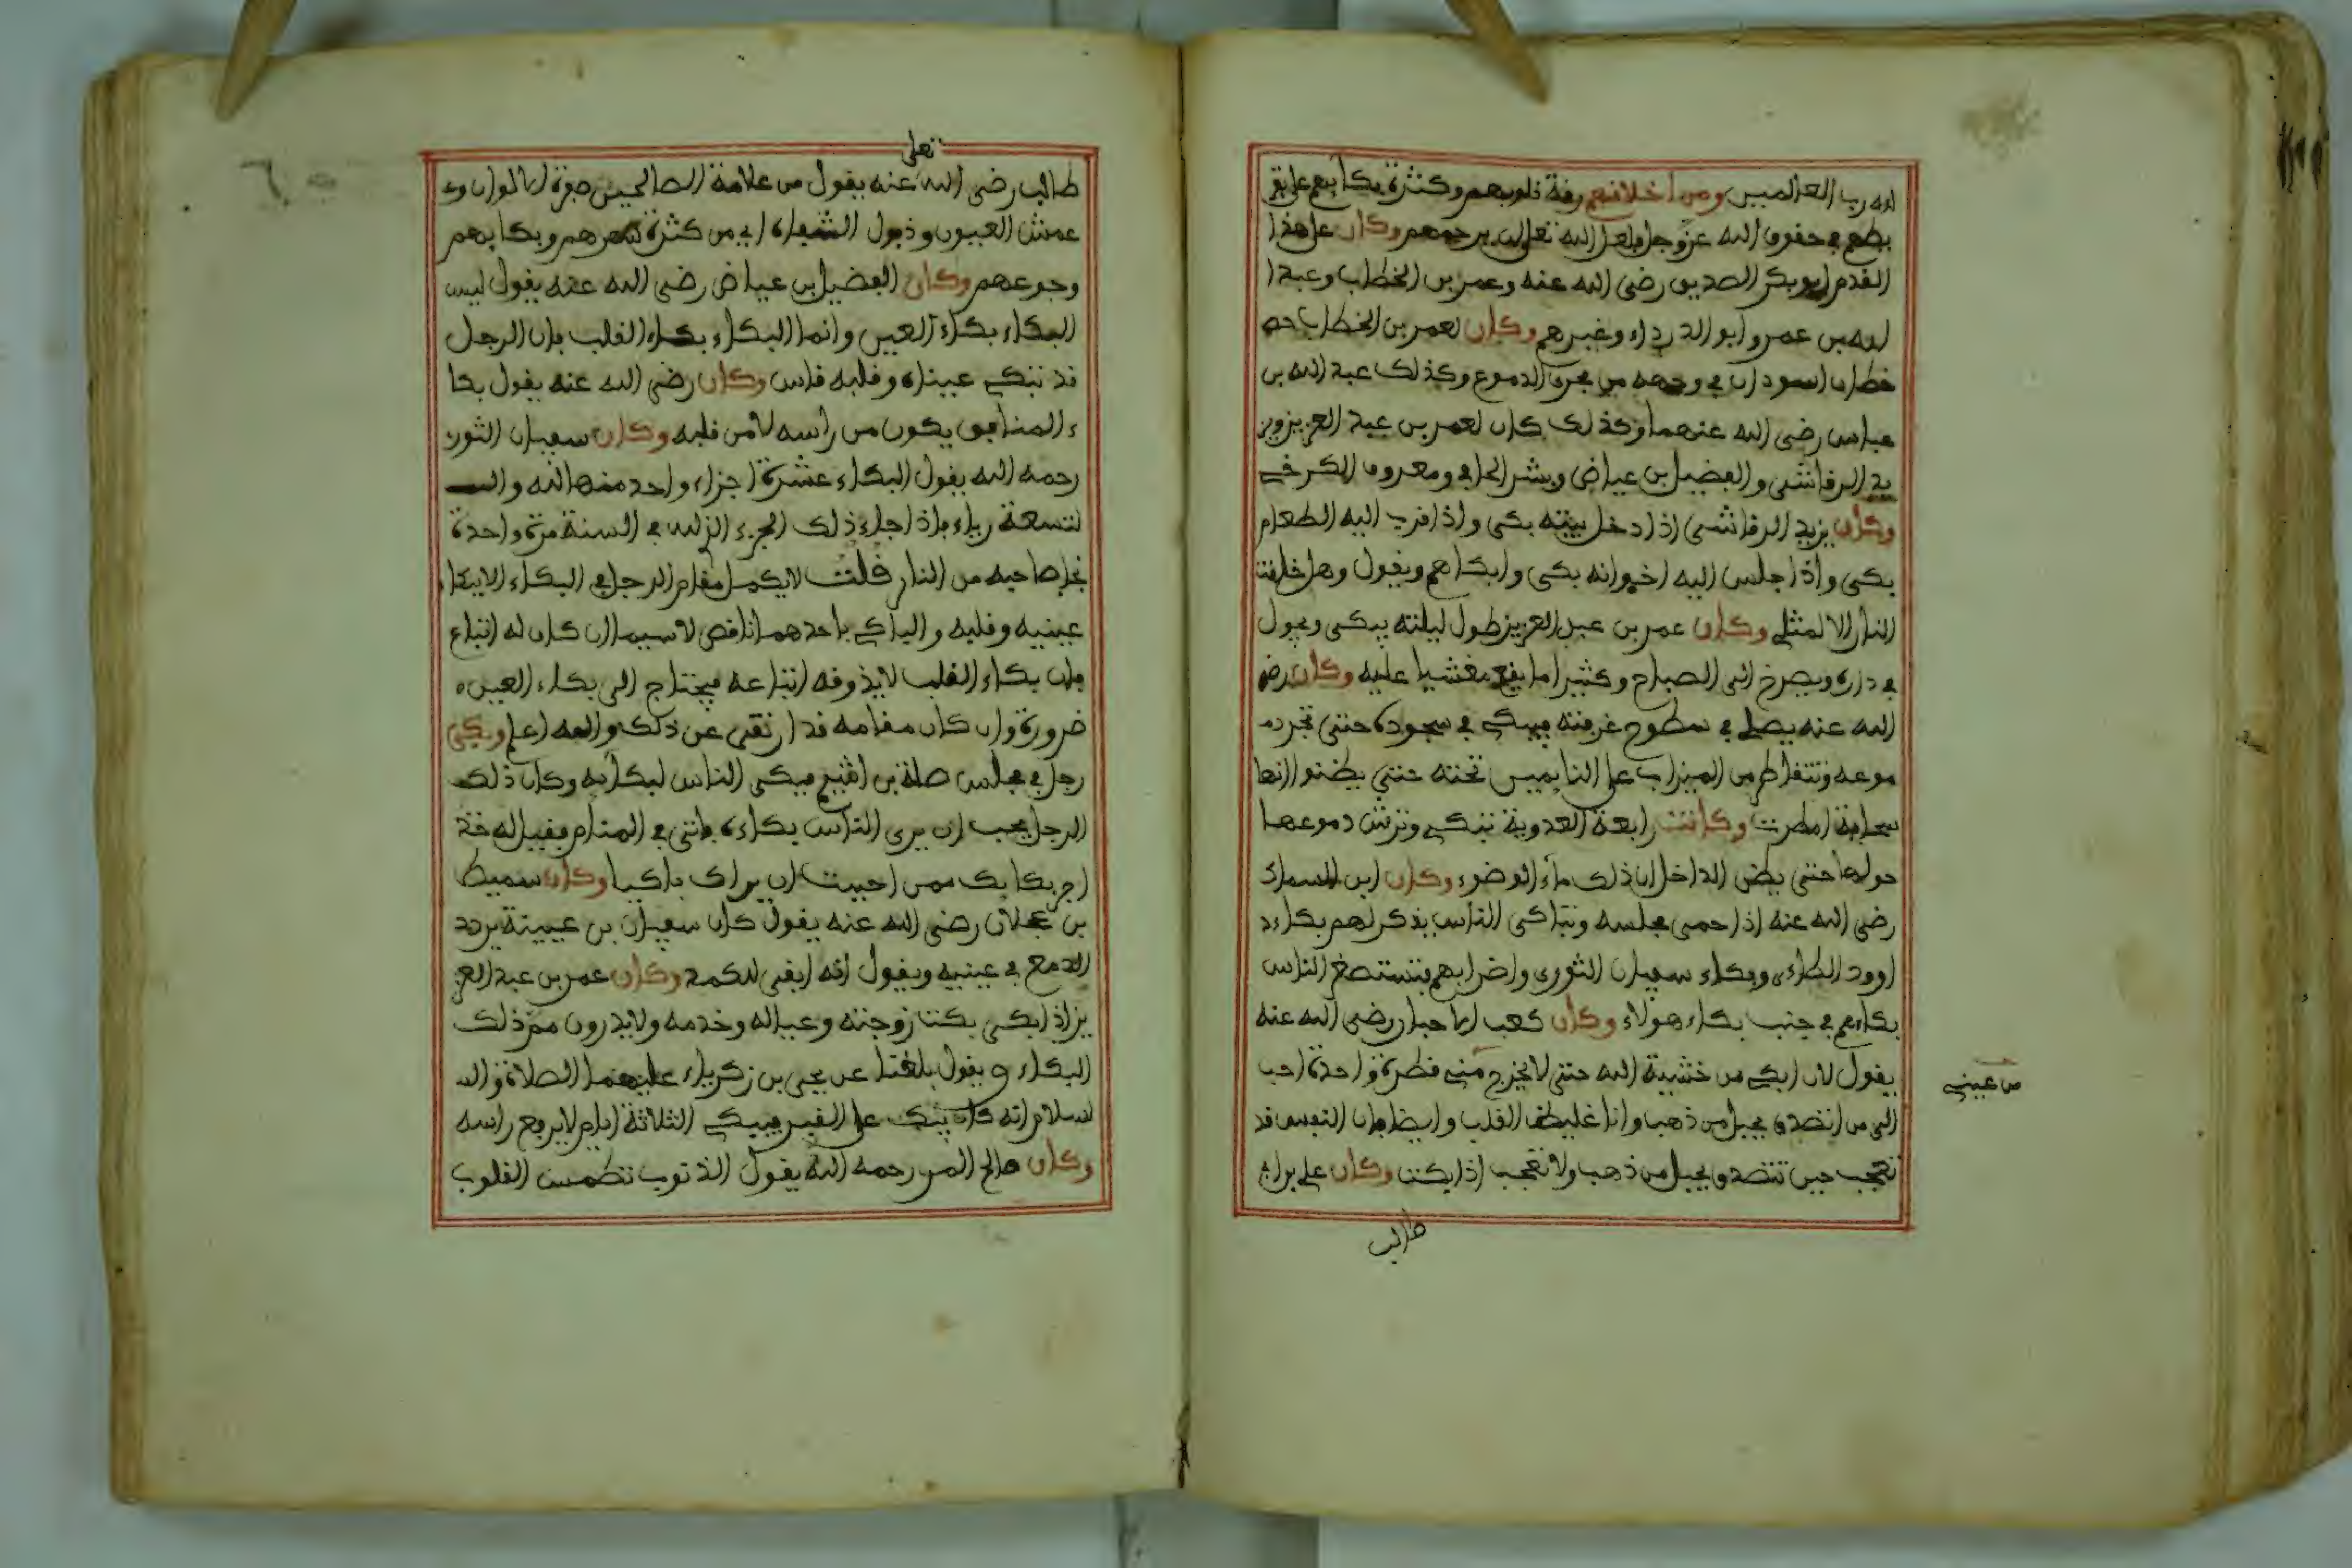 لله رب العالمين ومن اخلافهم رفة فلوبهم وكثرة بكايهم على تفر
يطهم في حفوق الله عز وجل لعل الله تعالى يرحمهم وكان على هذا
الفدم ابو بكر الصديق رضى الله عنه وعمر بن الخطاب وعبد ا
لله بن عمر وابو الدرداء وغيرهم وكان لعمر بن الخطاب
خطان اسودان في وجهه من مجرى الدموع وكذلك عبد الله بن
عباس رضى الله عنهما وكذلك كان لعمر بن عبد العزيز ويز
يد الرفاشى والفضيل بن عياض وبشر الحافى ومعروف الكرخي
وكان يزيد الرفاشى اذا دخل بيته بكى واذا فرب اليه الطعام
بكى واذا جلس اليه اخوانه بكى وابكاهم ويفول وهل خلفت
النار الا لمثلي وكان عمر بن عبد العزيز طول ليلته يبكى ويجول
في داره ويصرخ الى الصباح وكثيرا ما يفع مغشيا عليه وكان رضى
الله عنه يصلي في سطوح غرفته فيبكي في سجوده حتى تجر د
موعه وتتفاطر من الميزاب على النايمين تحته حتي يظنوا انها
سحابة امطرت وكانت رابعة العدوية تبكي وترش دموعها
حولها حتى يظن الداخل ان ذلك ماء الوضوء وكان ابن السماك
رضى الله عنه اذا حمى مجلسه وتباكى الناس يذكر لهم بكاء د
اوود الطاءى وبكاء سفيان الثورى واضرابهم فتستصغر الناس
بكاءهم في جنب بكاء هولاء وكان كعب الاحبار رضى الله عنه
يفول لان ابكي من خشية الله حتى لا يخرج مني فطرة واحدة احب
من عيني
الى من اتصدق بجبل من ذهب وانا غليظ الفلب وايضا فان النفس فد
تعجب حين تتصدق بجبل من ذهب ولا تعجب اذا بكت وكان على بن ابى
طالب
تعلى
طالب رضى الله عنه يفول من علامة الصالحين صفرة الالوان و
عمش العيون وذبول الشفاه اي من كثرة سهرهم وبكايهم
وجوعهم وكان الفضيل بن عياض رضى الله عنه يفول ليس
البكاء بكاء العين وانما البكاء بكاء الفلب فان الرجل
فد تبكي عيناه وفلبه فاس وكان رضى الله عنه يفول بكا
ء المنافق يكون من راسه لا من فلبه وكان سفيان الثورى
رحمه الله يفول البكاء عشرة اجزاء واحد منها لله وا
لتسعة رياء فاذا جاء ذلك الجزء الذي لله في السنة مرة واحدة
نجا صاحبه من النار فلت لا يكمل مفام الرجل في البكاء الا ببكاء
عينيه وفلبه والباكي باحدهما نافص لا سيما ان كان له اتباع
فان بكاء الفلب لا يذوفه اتباعه فيحتاج الى بكاء العين
ضرورة وان كان مفامه فد ارتقى عن ذلك والله اعلم وبكى
رجل في مجلس صلة بن اشيم فبكى الناس لبكايه وكان ذلك
الرجل يحب ان يرى الناس بكاءه فاتى في المنام فقيل له خذ
اجر بكايك ممن احببت ان يراك باكيا وكان سميط
بن عجلان رضى الله عنه يفول كان سفيان بن عيينة يردد
الدمع في عينيه ويفول انه ابفى للكمد وكان عمر بن عبد العز
يز اذا بكى بكت زوجته وعياله وخدمه ولا يدرون مم ذلك
البكاء ويفول بلغنا عن يحيى بن زكرياء عليهما الصلاة وال
لسلام انه كان يتك على الفبر فيبكي الثلاثة ايام لا يرفع راسه
وكان صالح المرى رحمه الله يفول الذنوب تطمس الفلوب